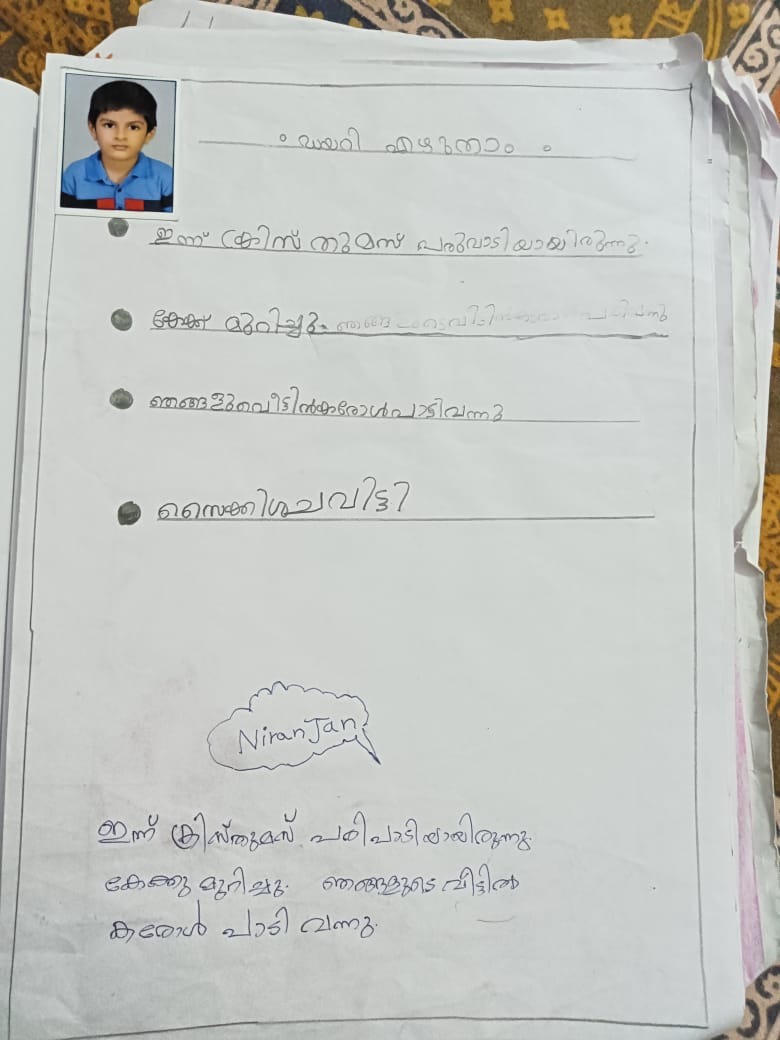 ഡയറി എഴുതാം
ഇന്ന് ക്രിസ് തുമസ് പരുവാടിയായിരുന്നു.
കേക്ക് മുറിച്ചു. ഞങ്ങ
ഞങ്ങളുവെട്ടിൽകരോൾപാടിവന്നു
സൈക്കിശചവിട്ടി
NiranJan
ഇന്ന് ക്രിസ്തുമസ് പരിപാടിയായിരുന്നു.
കേക്കു മുറിച്ചു. ഞങ്ങളുടെ വീട്ടിൽ
കരോൾ പാടി വന്നു.